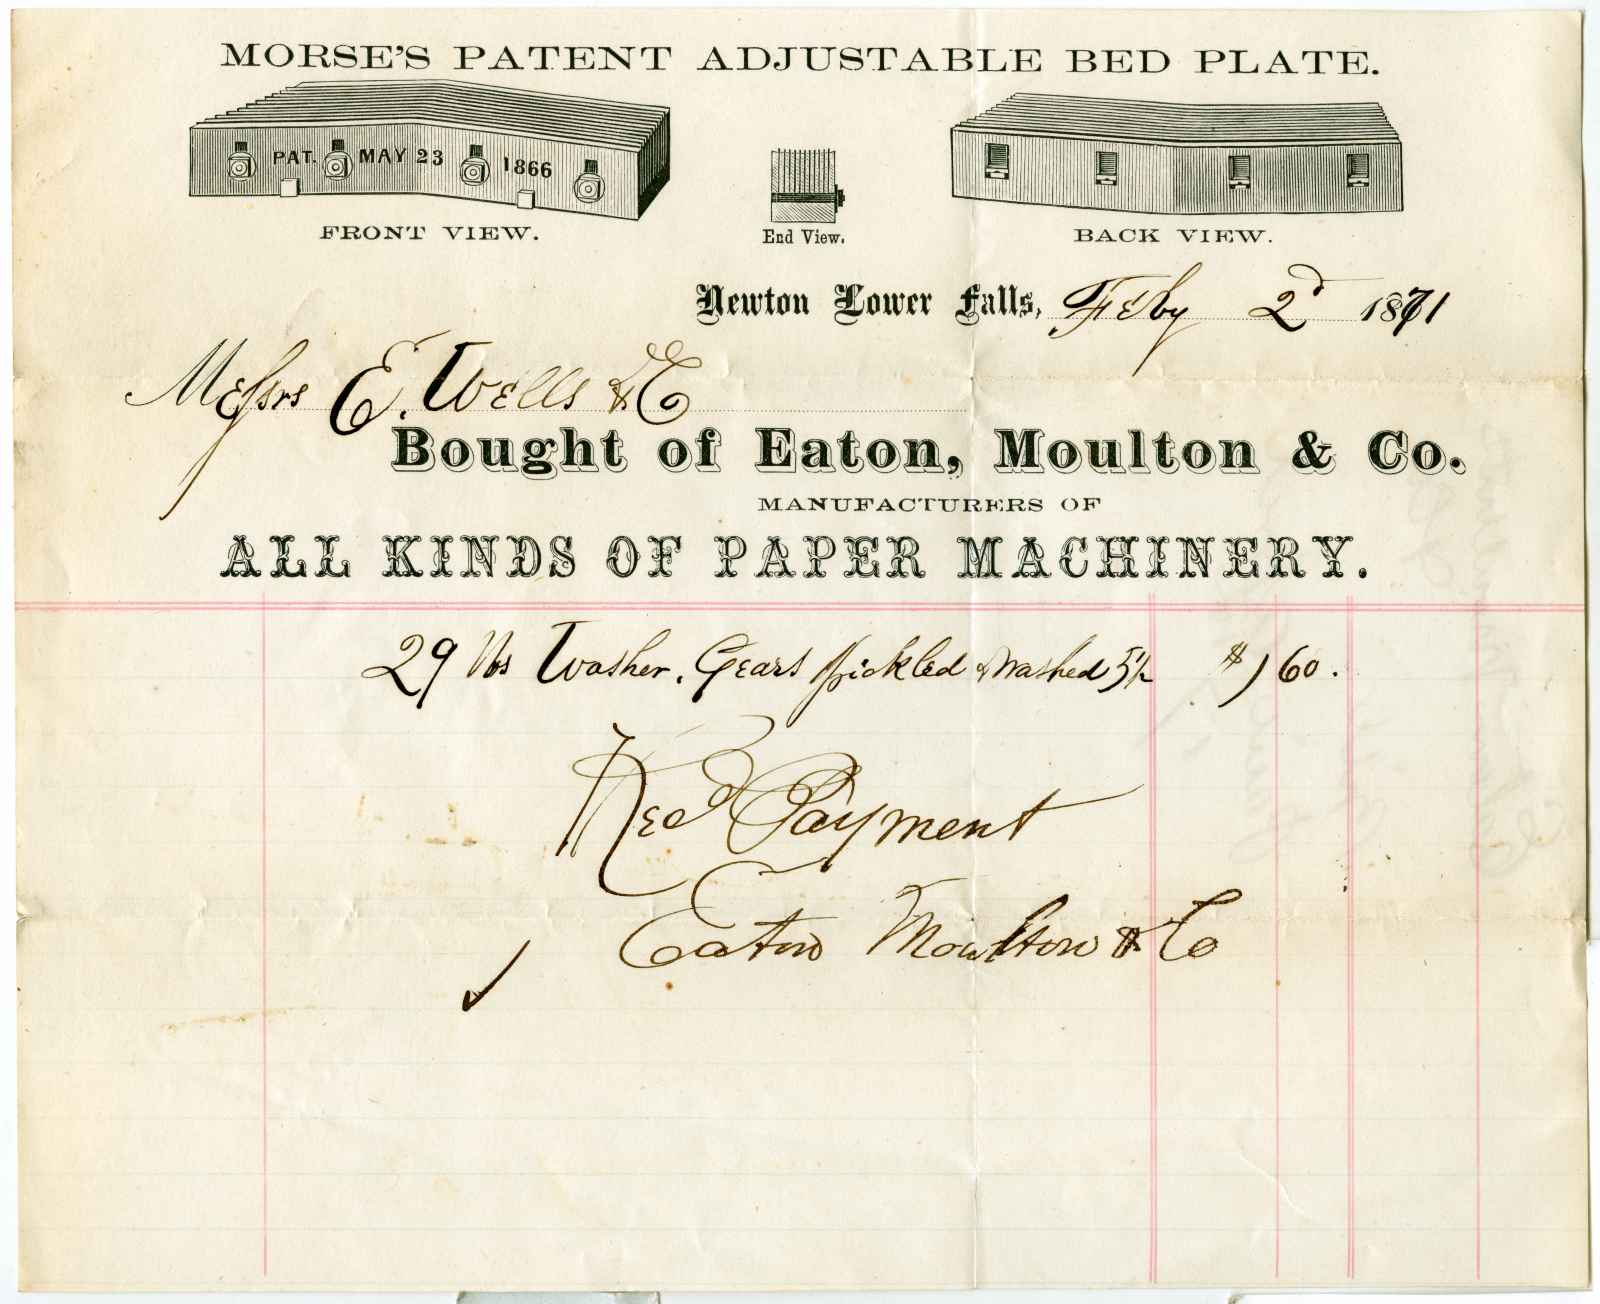 MORSE'S PATENT ADJUSTABLE BED PLATE.
PAT. MAY 23 1866
FRONT VIEW.
End View.
BACK VIEW.
Newton Lower Falls, Feby 2d 1871
Messrs E. Wells & Co
Bought of Eaton, Moulton & Co.
MANUFACTURERS OF
ALL KINDS OF PAPER MACHINERY.
29 lbs Washer. Gears pickled & Washed 5½ $1 60.
Recd Payment
Eaton Moulton & Co